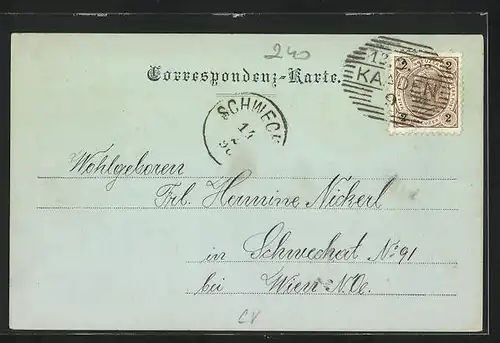 240
Correspondenz-Karte.
12
KAADEN
2 2
2 2
SCHWECH
14
Wohlgeboren
Frl. Hermine Nickerl
in Schwechat No 91
bei Wien N.Oe.
CV